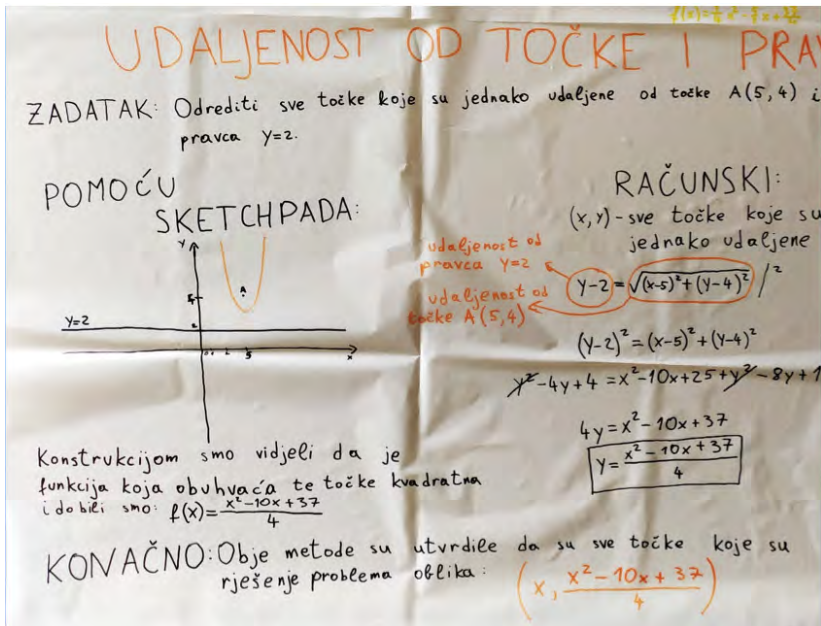 UDALJENOST OD TOČKE I PRAV
ZADATAK: Odrediti sve točke koje su jednako udaljene od točke A(5,4) i
pravca y=2.
POMOĆU
SKETCHPADA:
y
A
5
y=2
2
x
5
Konstrukcijom smo vidjeli da je
funkcija koja obuhvaća te točke kvadratna
i dobili smo: f(x)=\frac{x²-10x+37}{4}
RAČUNSKI:
(x,y)-sve točke koje su
jednako udaljene
udaljenost od
pravca y=2
udaljenost od
točke A(5,4)
y-2=√(x-5)²+(y-4)² /²
(y-2)²=(x-5)²+(y-4)²
y²-4y+4=x²-10x+25+y²-8y+1
4y=x²-10x+37
y=\frac{x²-10x+37}{4}
KONAČNO: Obje metode su utvrdile da su sve točke koje su
rješenje problema oblika: (x, \frac{x²-10x+37}{4})